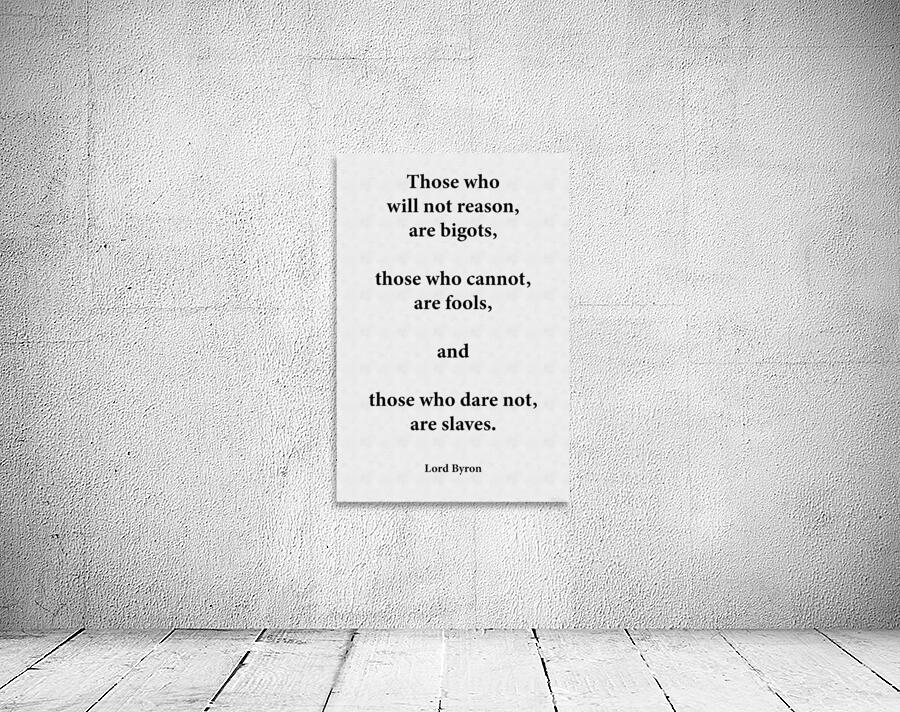 Those who
will not reason,
are bigots,
those who cannot,
are fools,
and
those who dare not,
are slaves.
Lord Byron